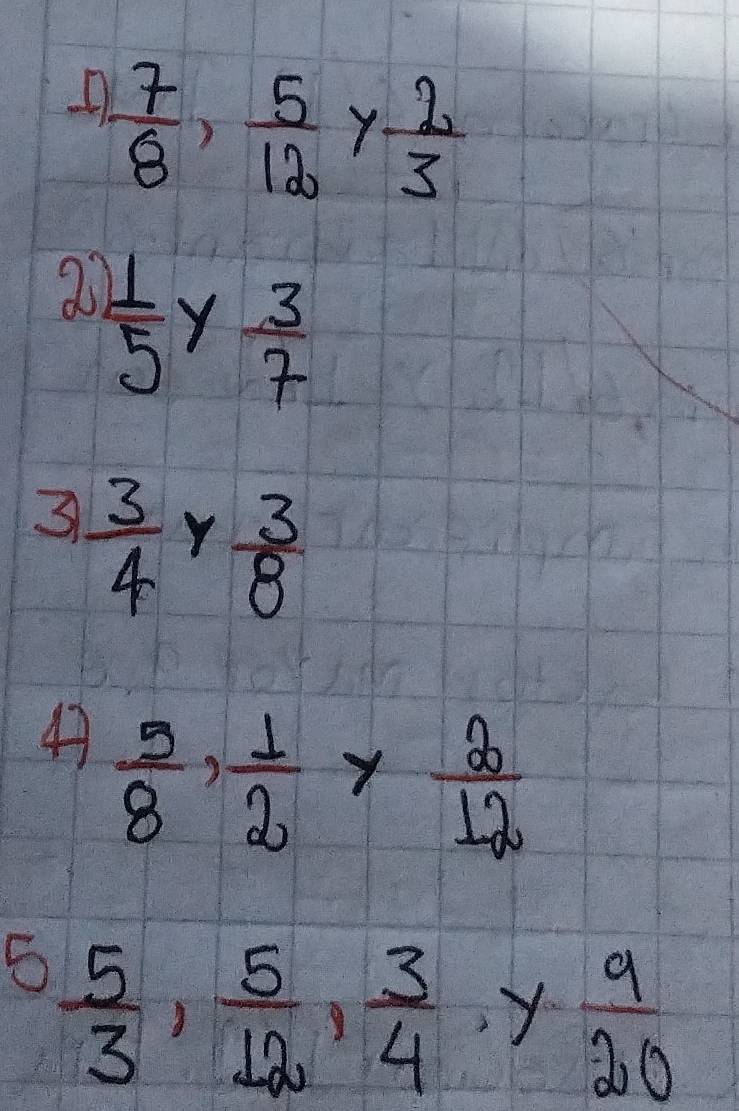 1) 7/8, 5/12 y 2/3
2) 1/5 y 3/7
3) 3/4 y 3/8
4) 5/8, 1/2 y 2/12
5 5/3, 5/12, 3/4, y 9/20